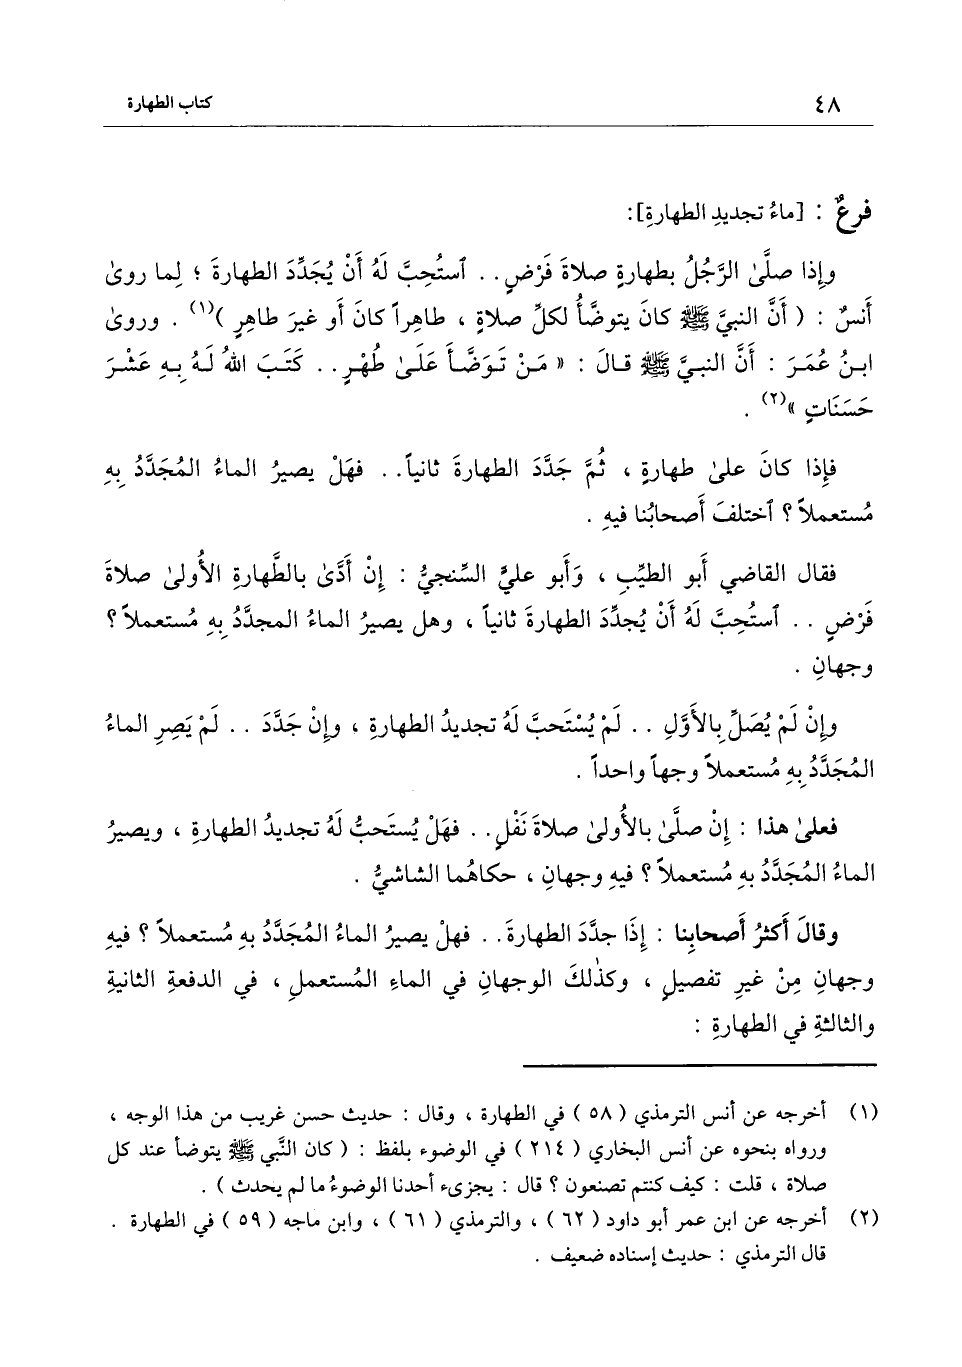 ٤٨ كتاب الطهارة
فرعٌ : [ماءُ تجديدِ الطهارةِ]:
وإِذا صلَّىٰ الرَّجُلُ بطهارةٍ صلاةَ فَرْضٍ.. ٱستُحِبَّ لَهُ أَنْ يُجَدِّدَ الطهارةَ ؛ لِما روىٰ
أَنسٌ : ( أَنَّ النبيَّ ﷺ كانَ يتوضَّأُ لكلِّ صلاةٍ ، طاهِراً كانَ أَو غيرَ طاهِرٍ )(١) . وروىٰ
ابنُ عُمَرَ : أَنَّ النبيَّ ﷺ قالَ : « مَنْ تَوَضَّأَ عَلَىٰ طُهْرٍ.. كَتَبَ اللهُ لَهُ بِهِ عَشْرَ
حَسَنَاتٍ »(٢) .
فإِذا كانَ علىٰ طهارةٍ ، ثُمَّ جَدَّدَ الطهارةَ ثانياً.. فهَلْ يصيرُ الماءُ المُجَدَّدُ بِهِ
مُستعملاً ؟ ٱختلفَ أَصحابُنا فيهِ .
فقال القاضي أَبو الطيِّبِ ، وَأَبو عليٍّ السِّنجيُّ : إِنْ أَدَّىٰ بالطَّهارةِ الأُولىٰ صلاةَ
فَرْضٍ .. ٱستُحِبَّ لَهُ أَنْ يُجدِّدَ الطهارةَ ثانياً ، وهل يصيرُ الماءُ المجدَّدُ بِهِ مُستعملاً ؟
وجهانِ .
وإِنْ لَمْ يُصَلِّ بِالأَوَّلِ .. لَمْ يُسْتَحبَّ لَهُ تجديدُ الطهارةِ ، وإِنْ جَدَّدَ .. لَمْ يَصِرِ الماءُ
المُجَدَّدُ بِهِ مُستعملاً وجهاً واحداً .
فعلىٰ هذا : إِنْ صلَّىٰ بالأُولىٰ صلاةَ نَفْلٍ.. فهَلْ يُستَحبُّ لَهُ تجديدُ الطهارةِ ، ويصيرُ
الماءُ المُجَدَّدُ بهِ مُستعملاً ؟ فيهِ وجهانِ ، حكاهُما الشاشيُّ .
وقالَ أَكثرُ أَصحابِنا : إِذَا جدَّدَ الطهارةَ.. فهلْ يصيرُ الماءُ المُجَدَّدُ بهِ مُستعملاً ؟ فيهِ
وجهانِ مِنْ غيرِ تفصيلٍ ، وكذٰلكَ الوجهانِ في الماءِ المُستعملِ ، في الدفعةِ الثانيةِ
والثالثةِ في الطهارةِ :
(١) أخرجه عن أنس الترمذي ( ٥٨ ) في الطهارة ، وقال : حديث حسن غريب من هذا الوجه ،
ورواه بنحوه عن أنس البخاري ( ٢١٤ ) في الوضوء بلفظ : ( كان النَّبي ﷺ يتوضأ عند كل
صلاة ، قلت : كيف كنتم تصنعون ؟ قال : يجزىء أحدنا الوضوءُ ما لم يحدث ) .
(٢) أخرجه عن ابن عمر أبو داود ( ٦٢ ) ، والترمذي ( ٦١ ) ، وابن ماجه ( ٥٩ ) في الطهارة .
قال الترمذي : حديث إسناده ضعيف .